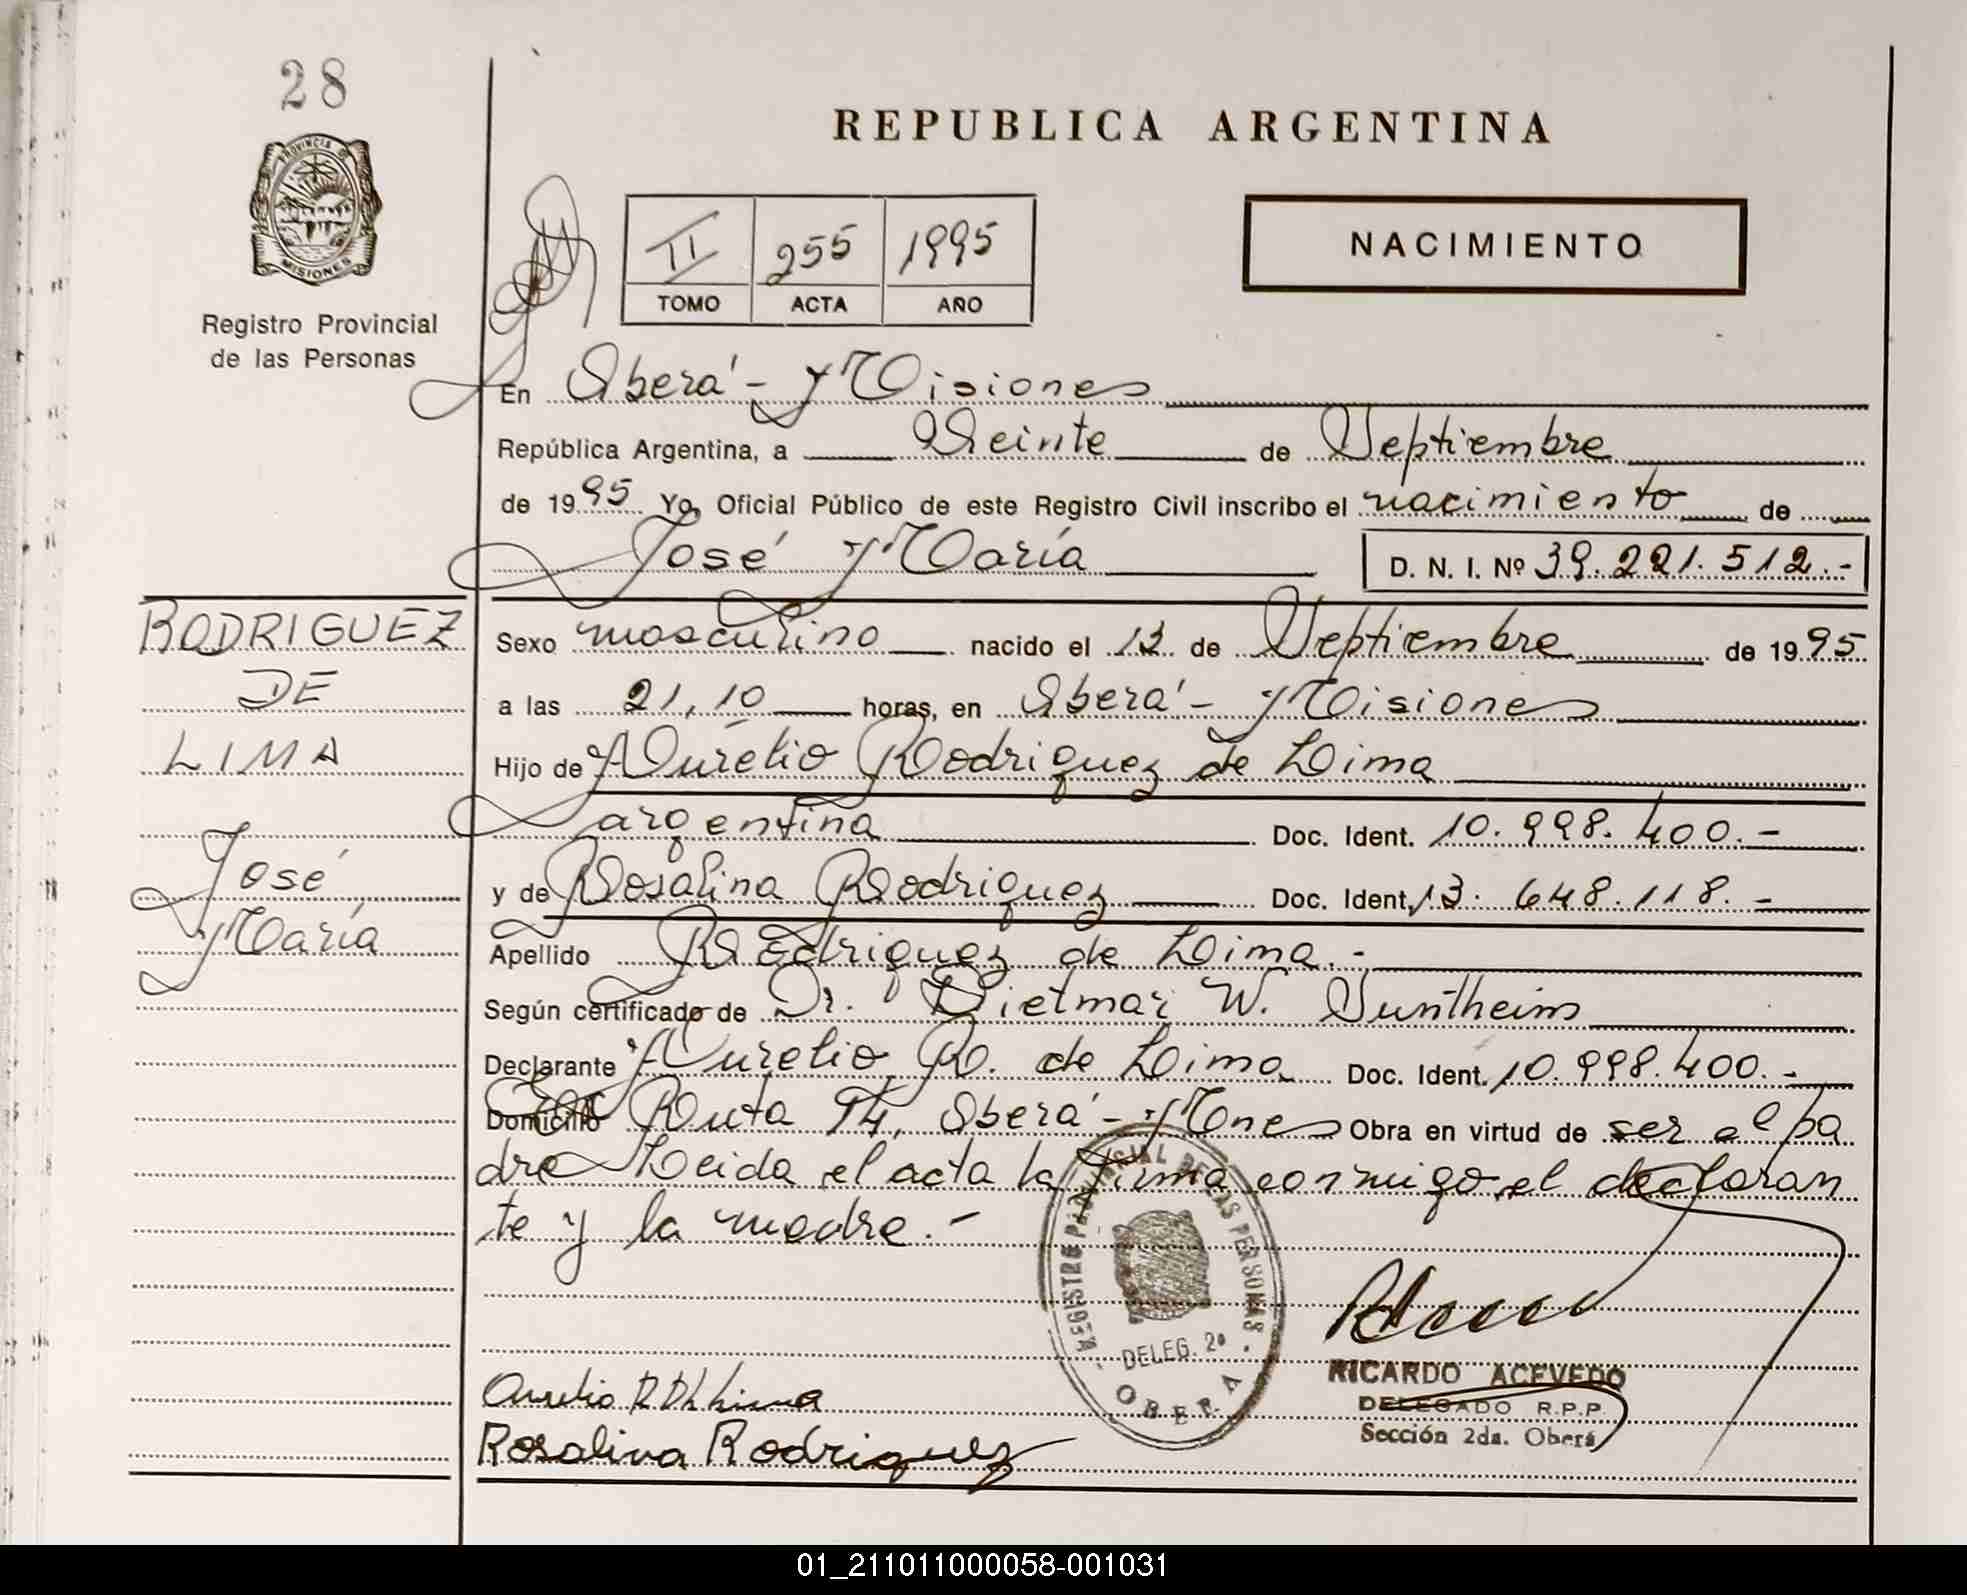 28
REPUBLICA ARGENTINA
PROVINCIA D
MISIONES
Registro Provincial
de las Personas
II 255 1995
TOMO ACTA AÑO
NACIMIENTO
En Oberá - Misiones
República Argentina, a Veinte de Septiembre
de 1995 Yo, Oficial Público de este Registro Civil inscribo el nacimiento de
José María D. N. I. Nº 39.221.512.-
RODRIGUEZ
DE
LIMA
José
María
Sexo masculino nacido el 13 de Septiembre de 1995
a las 21,10 horas, en Oberá - Misiones
Hijo de Aurelio Rodriguez de Lima
argentina Doc. Ident. 10.998.400.-
y de Rosalina Rodriguez Doc. Ident. 13.648.118.-
Apellido Rodriguez de Lima.-
Según certificado de Dr. Dietmar W. Suntheim
Declarante Aurelio R. de Lima Doc. Ident. 10.998.400.-
Domicilio Ruta 14, Oberá - Mnes Obra en virtud de ser el pa
dre Leida el acta la firma conmigo el declaran
te y la madre.-
REGISTRO PROVINCIAL DE LAS PERSONAS
- DELEG. 2ª -
OBERA
RICARDO ACEVEDO
DELEGADO R.P.P.
Sección 2da. Oberá
Aurelio R D L Lima
Rosalina Rodriguez
01_211011000058-001031